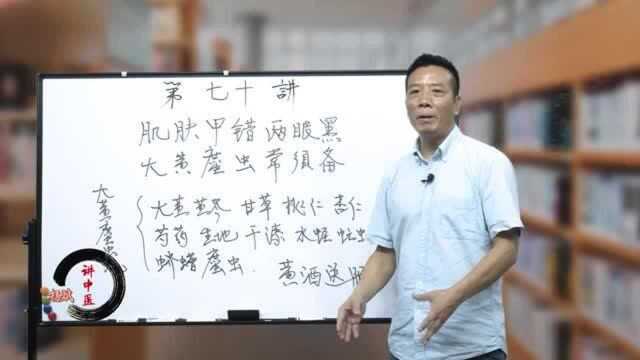 第七十講
肌肤甲错两眼黑
大黄䗪虫常须备
大黄䗪虫丸
大黄黄芩 甘草 桃仁 杏仁
芍药 生地 干漆 水蛭 虻虫
蛴螬 䗪虫. 黄酒送服
讲中医